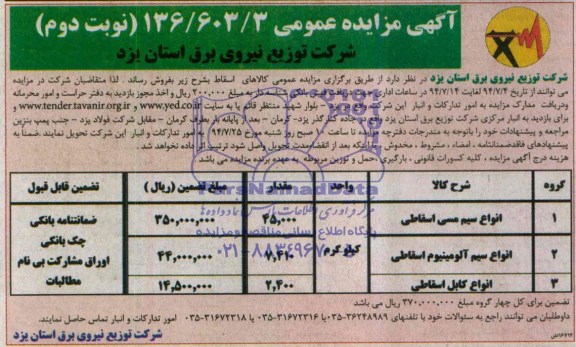 آگهی مزایده عمومی ۱۳۶/۶۰۳/۳ (نوبت دوم)
شرکت توزیع نیروی برق استان یزد
شرکت توزیع نیروی برق استان یزد در نظر دارد از طریق برگزاری مزایده عمومی کالاهای اسقاط بشرح زیر بفروش رساند . لذا متقاضیان شرکت در مزایده
می توانند از تاریخ ۹۴/۷/۴ لغایت ۹۴/۷/۱۴ در ساعات اداری بانکی شناسه دار به مبلغ ۲۰۰,۰۰۰ ریال و اخذ مجوز بازدید به دفتر حراست و امور محرمانه
و دریافت مدارک مزایده به امور تدارکات و انبار این شرکت بلوار شهید منتظر قائم یا به سایت www.yed.co.ir و www.tender.tavanir.org.ir و
برای بازدید به انبار مرکزی شرکت توزیع برق استان یزد واقع در جاده کنار گذر یزد- کرمان – بعد از پایانه بار بطرف کرمان – مقابل شرکت فولاد یزد – جنب پمپ بنزین
مراجعه و پیشنهادات خود را باتوجه به مندرجات دفترچه مزایده تا ساعت صبح روز شنبه مورخ ۹۴/۷/۲۵ به امور تدارکات و انبار این شرکت تحویل نمایند .ضمناً به
پیشنهادهای فاقد ضمانتنامه ، امضاء ، مشروط ، مخدوش بعد از انقضاء مدت تحویل واصل شود ترتیب اثر داده نخواهد شد.
هزینه درج آگهی مزایده ، کلیه کسورات قانونی ، بارگیری ،حمل و توزین مربوطه به عهده برنده مزایده می باشد
گروه شرح کالا واحد مقدار مبلغ تضمین (ریال) تضمین قابل قبول
۱ انواع سیم مسی اسقاطی کیلوگرم ۲۵,۰۰۰ ۳۵۰,۰۰۰,۰۰۰ ضمانتنامه بانکی
چک بانکی
۲ انواع سیم آلومینیوم اسقاطی ۴۴,۰۰۰,۰۰۰ اوراق مشارکت بی نام
مطالبات
۳ انواع کابل اسقاطی ۲,۴۰۰ ۱۴,۵۰۰,۰۰۰
تضمین برای کل چهار گروه مبلغ ۳۷۰,۰۰۰,۰۰۰ ریال می باشد
داوطلبان می توانند راجع به سئوالات خود با تلفنهای ۳۶۲۴۸۹۸۹-۰۳۵ یا ۳۱۶۷۲۳۱۶-۰۳۵ یا ۳۱۶۷۲۳۱۸-۰۳۵ امور تدارکات و انبار تماس حاصل نمایند.
شرکت توزیع نیروی برق استان یزد
ParsNamadData
پایگاه اطلاع رسانی مناقصه و مزایده
۰۲۱-۸۸۳۴۹۶۷۰